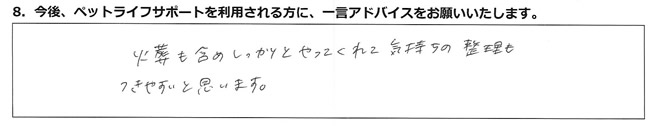 8．今後、ペットライフサポートを利用される方に、一言アドバイスをお願いいたします。
火葬も含めしっかりとやってくれて気持ちの整理も
つきやすいと思います。